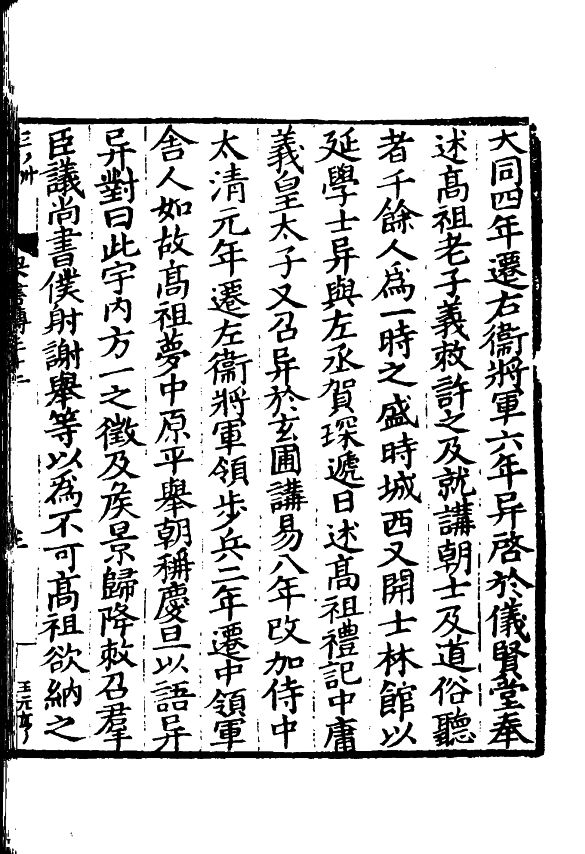 大同四年遷右衞將軍六年异啓於儀賢堂奉
述髙祖老子義敕許之及就講朝士及道俗聽
者千餘人爲一時之盛時城西又開士林館以
延學士异與左丞賀琛遞日述髙祖禮記中庸
義皇太子又召异於玄圃講易八年改加侍中
太清元年遷左衞將軍領步兵二年遷中領軍
舎人如故髙祖夢中原平舉朝稱慶旦以語异
异對曰此宇内方一之徵及侯景歸降敕召羣
臣議尚書僕射謝舉等以為不可髙祖欲納之